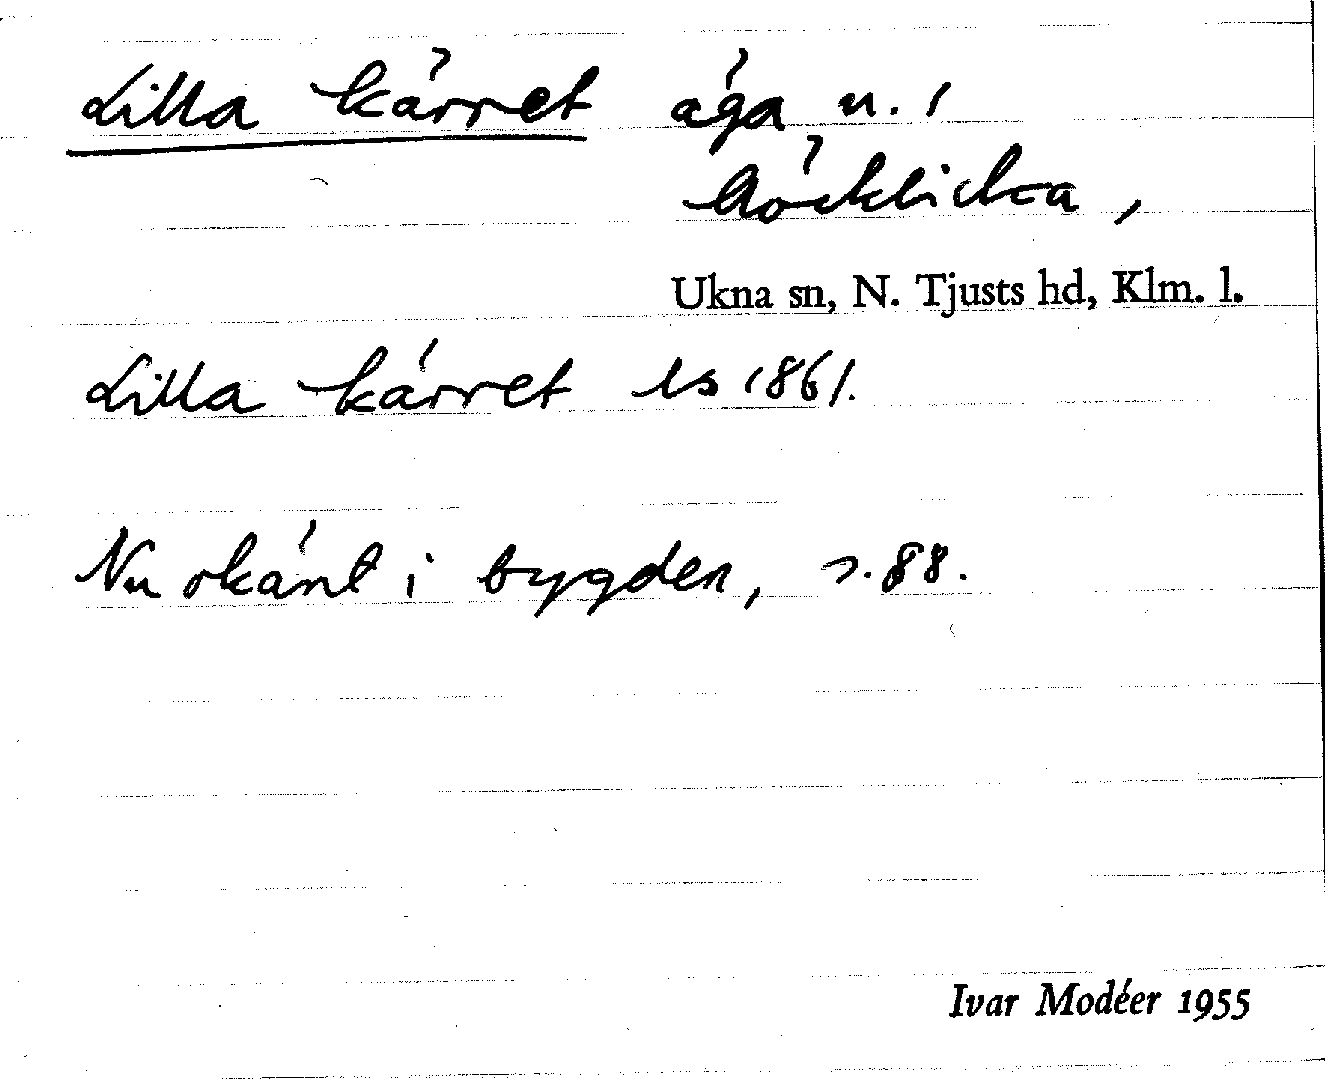 Lilla kärret äga n. 1
Höcklicka,
Ukna sn, N. Tjusts hd, Klm. l.
Lilla kärret ls 1861.
Nu okänt i bygden, s. 88.
Ivar Modéer 1955